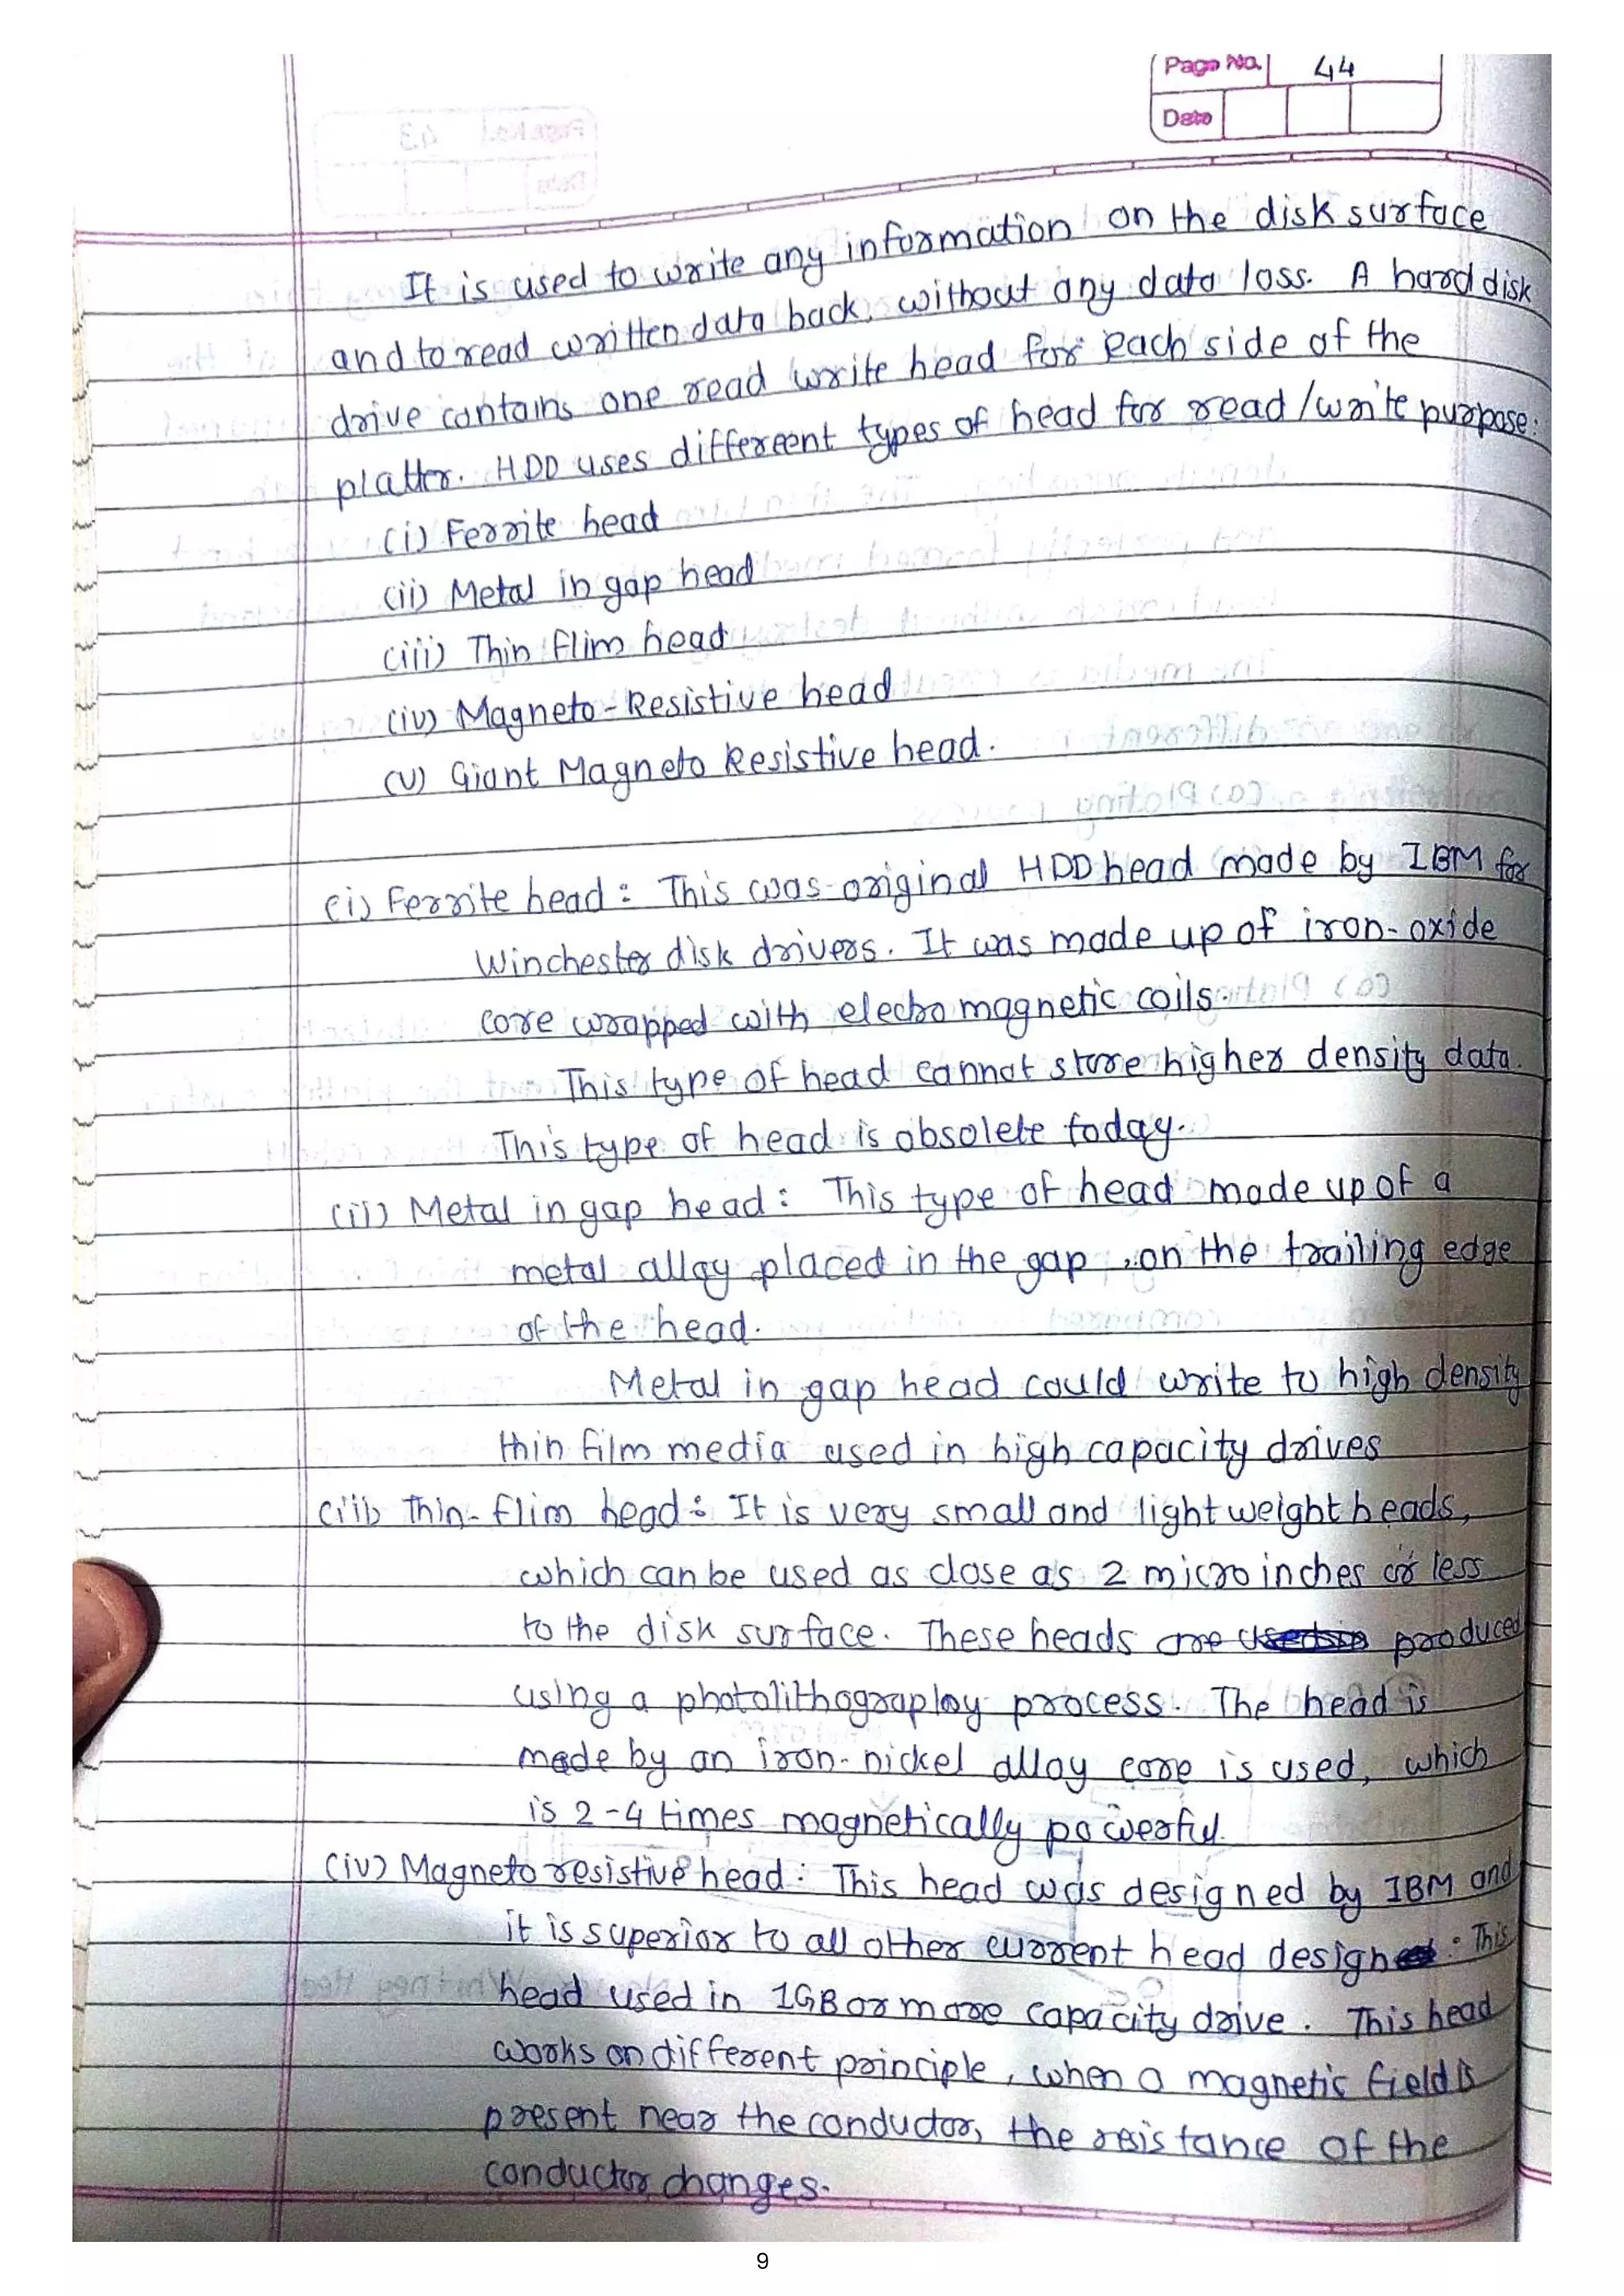 Page No. 44
Date
It is used to write any information on the disk surface
and to read written data back, without any data loss. A hard disk
drive contains one read write head for each side of the
platter. HDD uses differeent types of head for read/write purpose:
(i) Ferrite head
(ii) Metal in gap head
(iii) Thin flim head
(iv) Magneto-Resistive head
(v) Giant Magneto Resistive head.
(i) Ferrite head : This was original HDD head made by IBM for
Winchester disk drivers. It was made up of iron-oxide
core wrapped with electro magnetic coils.
This type of head cannot store higher density data.
This type of head is obsolete today.
(ii) Metal in gap head : This type of head made up of a
metal alloy placed in the gap , on the trailing edge
of the head.
Metal in gap head could write to high density
thin film media used in high capacity drives
(iii) Thin-flim head : It is very small and light weight heads,
which can be used as close as 2 micro inches or less
to the disk surface. These heads are produced
using a photolithography process. The head is
made by an iron-nickel alloy core is used, which
is 2-4 times magnetically powerful.
(iv) Magneto resistive head : This head was designed by IBM and
it is superior to all other current head design. This
head used in 1GB or more capacity drive. This head
works on different principle, when a magnetic field is
present near the conductor, the resistance of the
conductor changes.
9